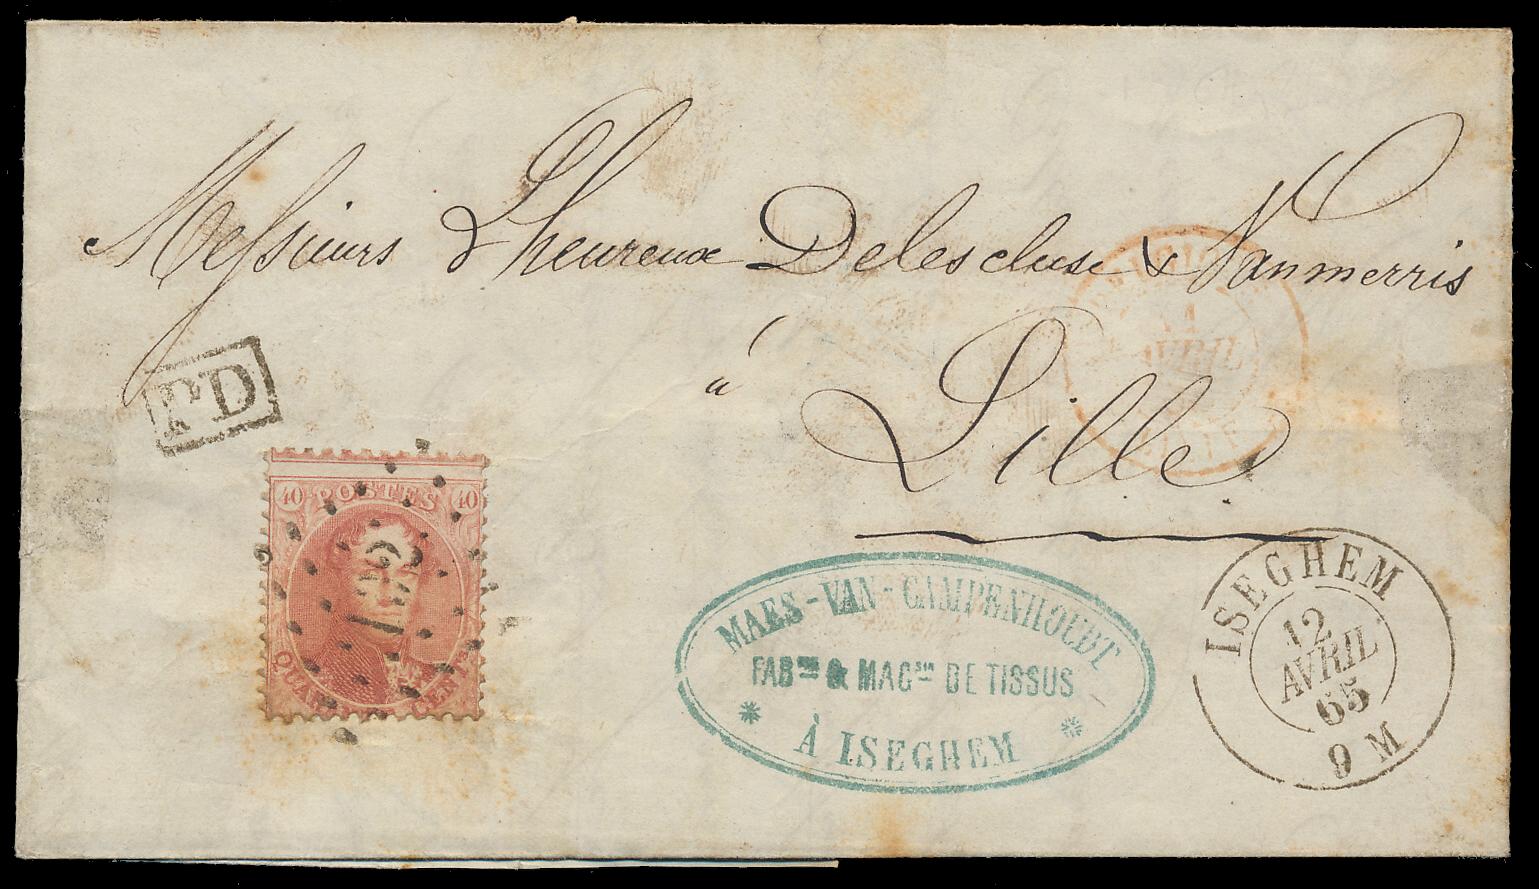 Messieurs d'Lheureux Delescluse & Vanmerris
à Lille
PD
40 POSTES 40
AVRIL
MAES-VAN-CAMPENHOUDT
FABten & MAGsin DE TISSUS
À ISEGHEM
ISEGHEM
12
AVRIL
65
9 M